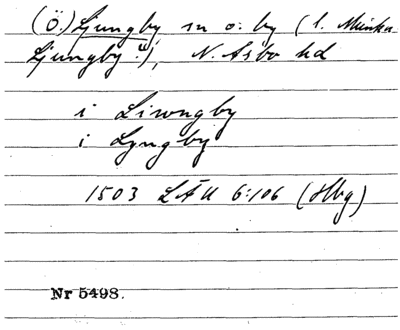 (Ö.) Ljungby sn o. by (l. Munka
Ljungby?), N. Åsbo hd
i Liwngby
i Lyngby
1503 LÄU 6:106 (Hbg)
Nr 5498.